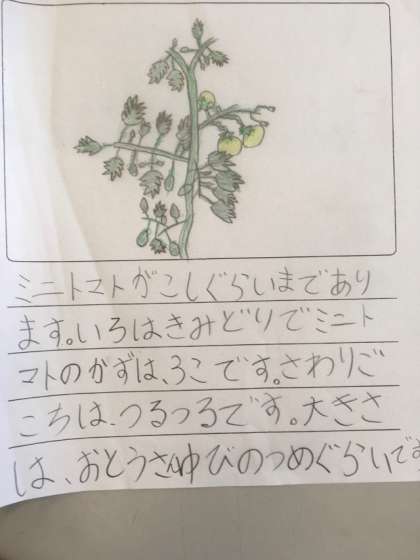 ミニトマトがこしぐらいまであり
ます。いろはきみどりでミニト
マトのかずは、3こです。さわりご
こちは、つるつるです。大きさ
は、おとうさんゆびのつめぐらいです